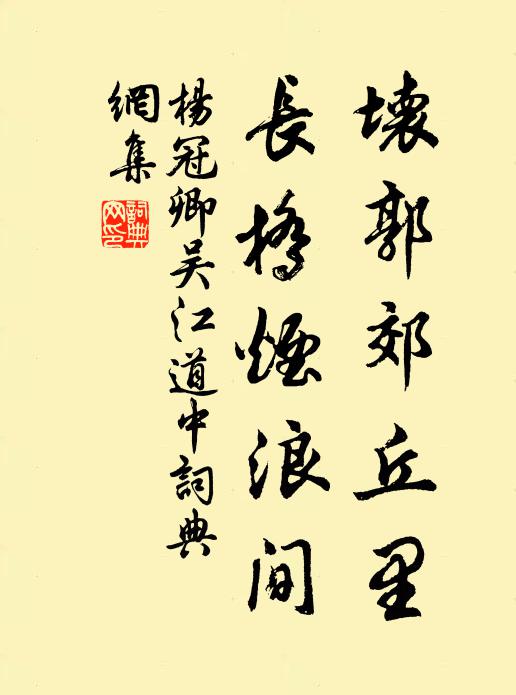 壞郭郊丘里
長橋煙浪間
楊冠卿吴江道中詞典
網集
詞典
网印